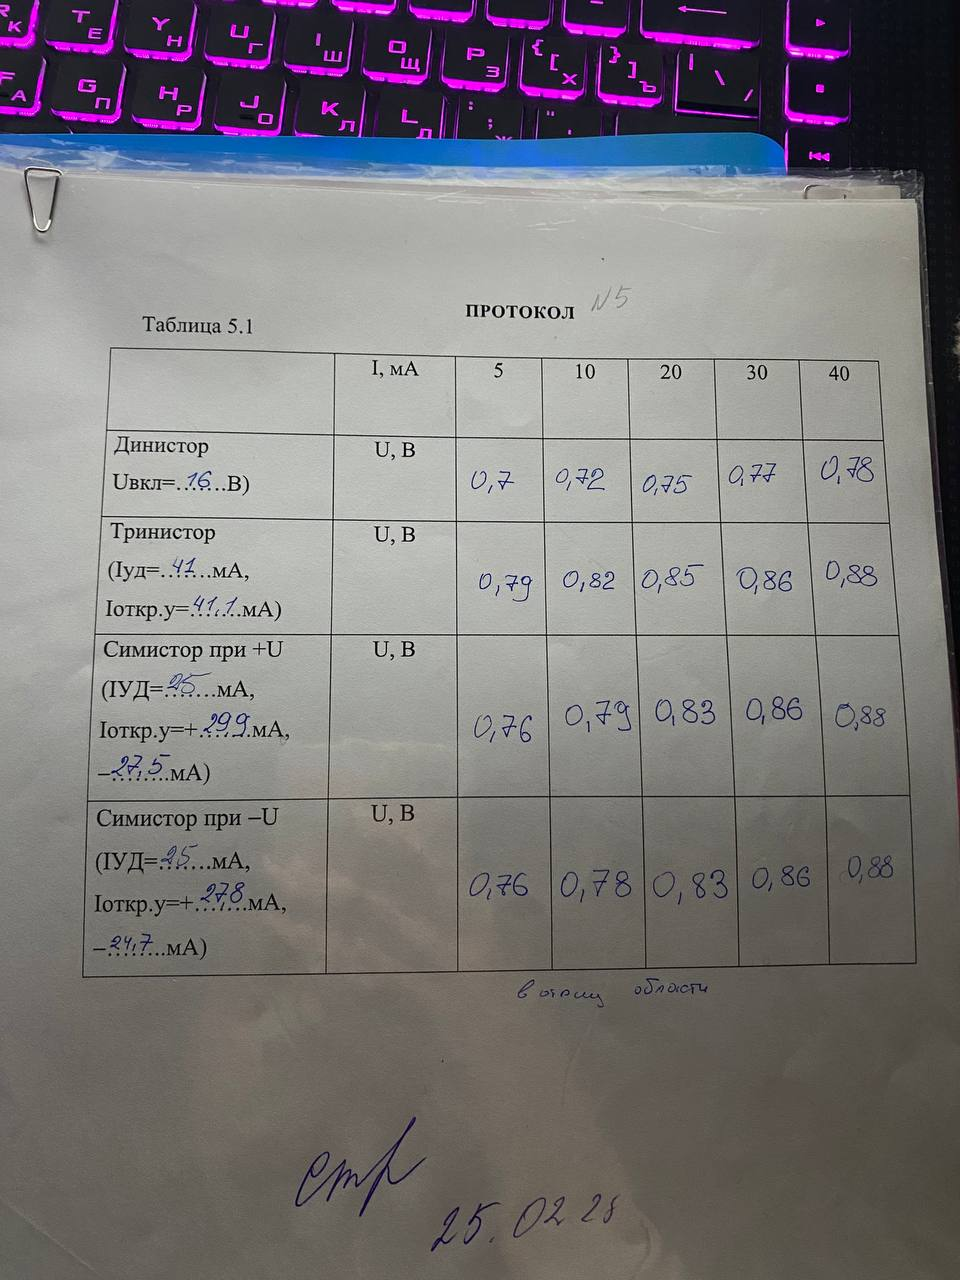 R К T Е Y Н U Г I Ш O Щ P З { [ Х } ] Ъ | \ /
F А G П H Р J О K Л L Д : ; Ж " '
ПРОТОКОЛ N5
Таблица 5.1
I, мА 5 10 20 30 40
Динистор U, В
Uвкл=...16...В) 0,7 0,72 0,75 0,77 0,78
Тринистор U, В
(Iуд=...41...мА, 0,79 0,82 0,85 0,86 0,88
Iоткр.у=41,1.мА)
Симистор при +U U, В
(IУД=...25...мА,
Iоткр.у=+.29,9.мА, 0,76 0,79 0,83 0,86 0,88
–27,5...мА)
Симистор при –U U, В
(IУД=...25...мА, 0,76 0,78 0,83 0,86 0,88
Iоткр.у=+.27,8.мА,
–24,7...мА)
в отриц области
25.02